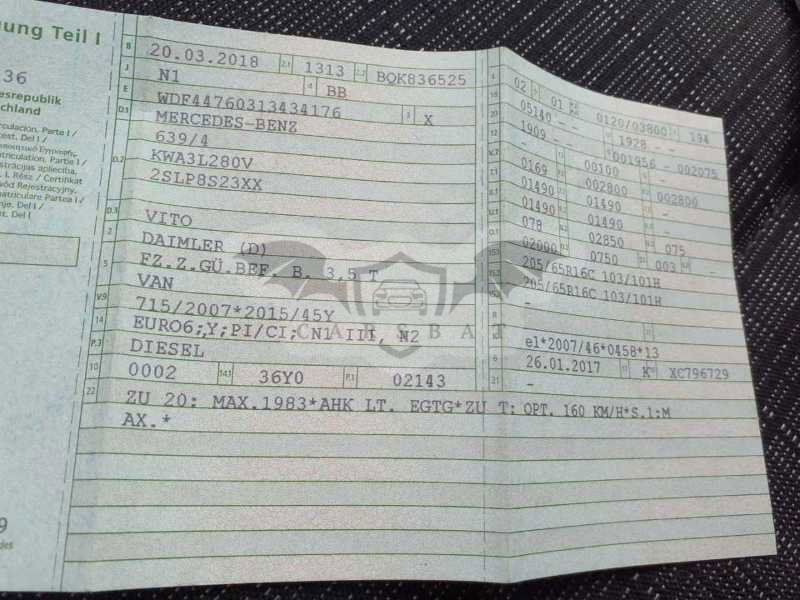 gung Teil I
36
esrepublik
chland
B 20.03.2018 2.1 1313 2.2 BQK836525
J N1 4 BB
E WDF44760313434176 3 X
D.1 MERCEDES-BENZ
639/4
D.2 KWA3L280V
2SLP8S23XX
D.3 VITO
2 DAIMLER (D)
5 FZ.Z.GÜ.BEF. B. 3,5 T
VAN
V.9 715/2007*2015/45Y
14 EURO6;Y;PI/CI; N1 III, N2
P.3 DIESEL
10 0002 14.1 36Y0 P.1 02143
22 ZU 20: MAX.1983*AHK LT. EGTG*ZU T: OPT. 160 KM/H*S.1:M
AX.*
02 01 0120/03800 194
05140 - -
1909 - - 1928 - -
- 001956 - 002075
0169 00100 -
01490 002800 002800
01490 01490 -
078 01490 -
02000 02850 075
0750 003 -
205/65R16C 103/101H
205/65R16C 103/101H
-
e1*2007/46*0458*13
6 26.01.2017 K XC796729
21 -
CARSBAT
9